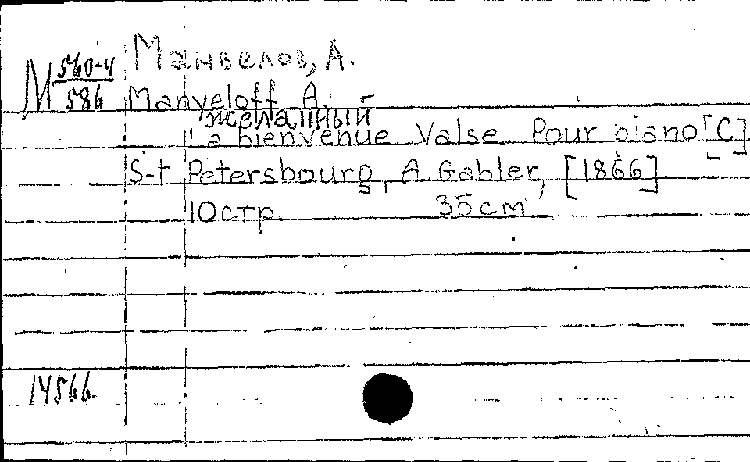 Манвелов, А.
М 560-4/586
Manveloff A.
желанный
La bienvenue Valse Pour piano [C]
S-t Petersbourg, A Gabler, [1866]
10 стр. 35 см
14566.